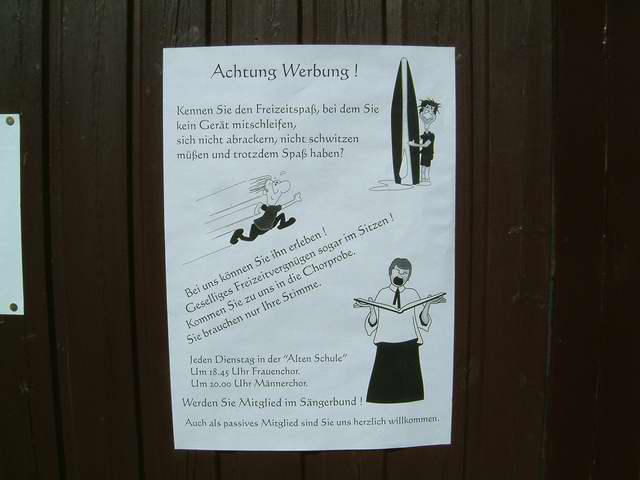 Achtung Werbung !
Kennen Sie den Freizeitspaß, bei dem Sie
kein Gerät mitschleifen,
sich nicht abrackern, nicht schwitzen
müßen und trotzdem Spaß haben?
Bei uns können Sie ihn erleben !
Geselliges Freizeitvergnügen sogar im Sitzen !
Kommen Sie zu uns in die Chorprobe.
Sie brauchen nur Ihre Stimme.
Jeden Dienstag in der "Alten Schule"
Um 18.45 Uhr Frauenchor.
Um 20.00 Uhr Männerchor.
Werden Sie Mitglied im Sängerbund !
Auch als passives Mitglied sind Sie uns herzlich willkommen.